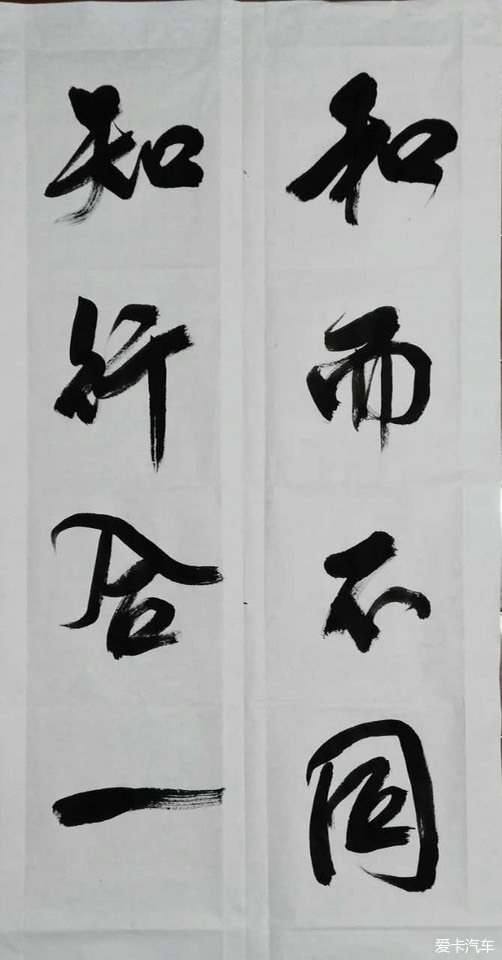 和而不同
知行合一
爱卡汽车